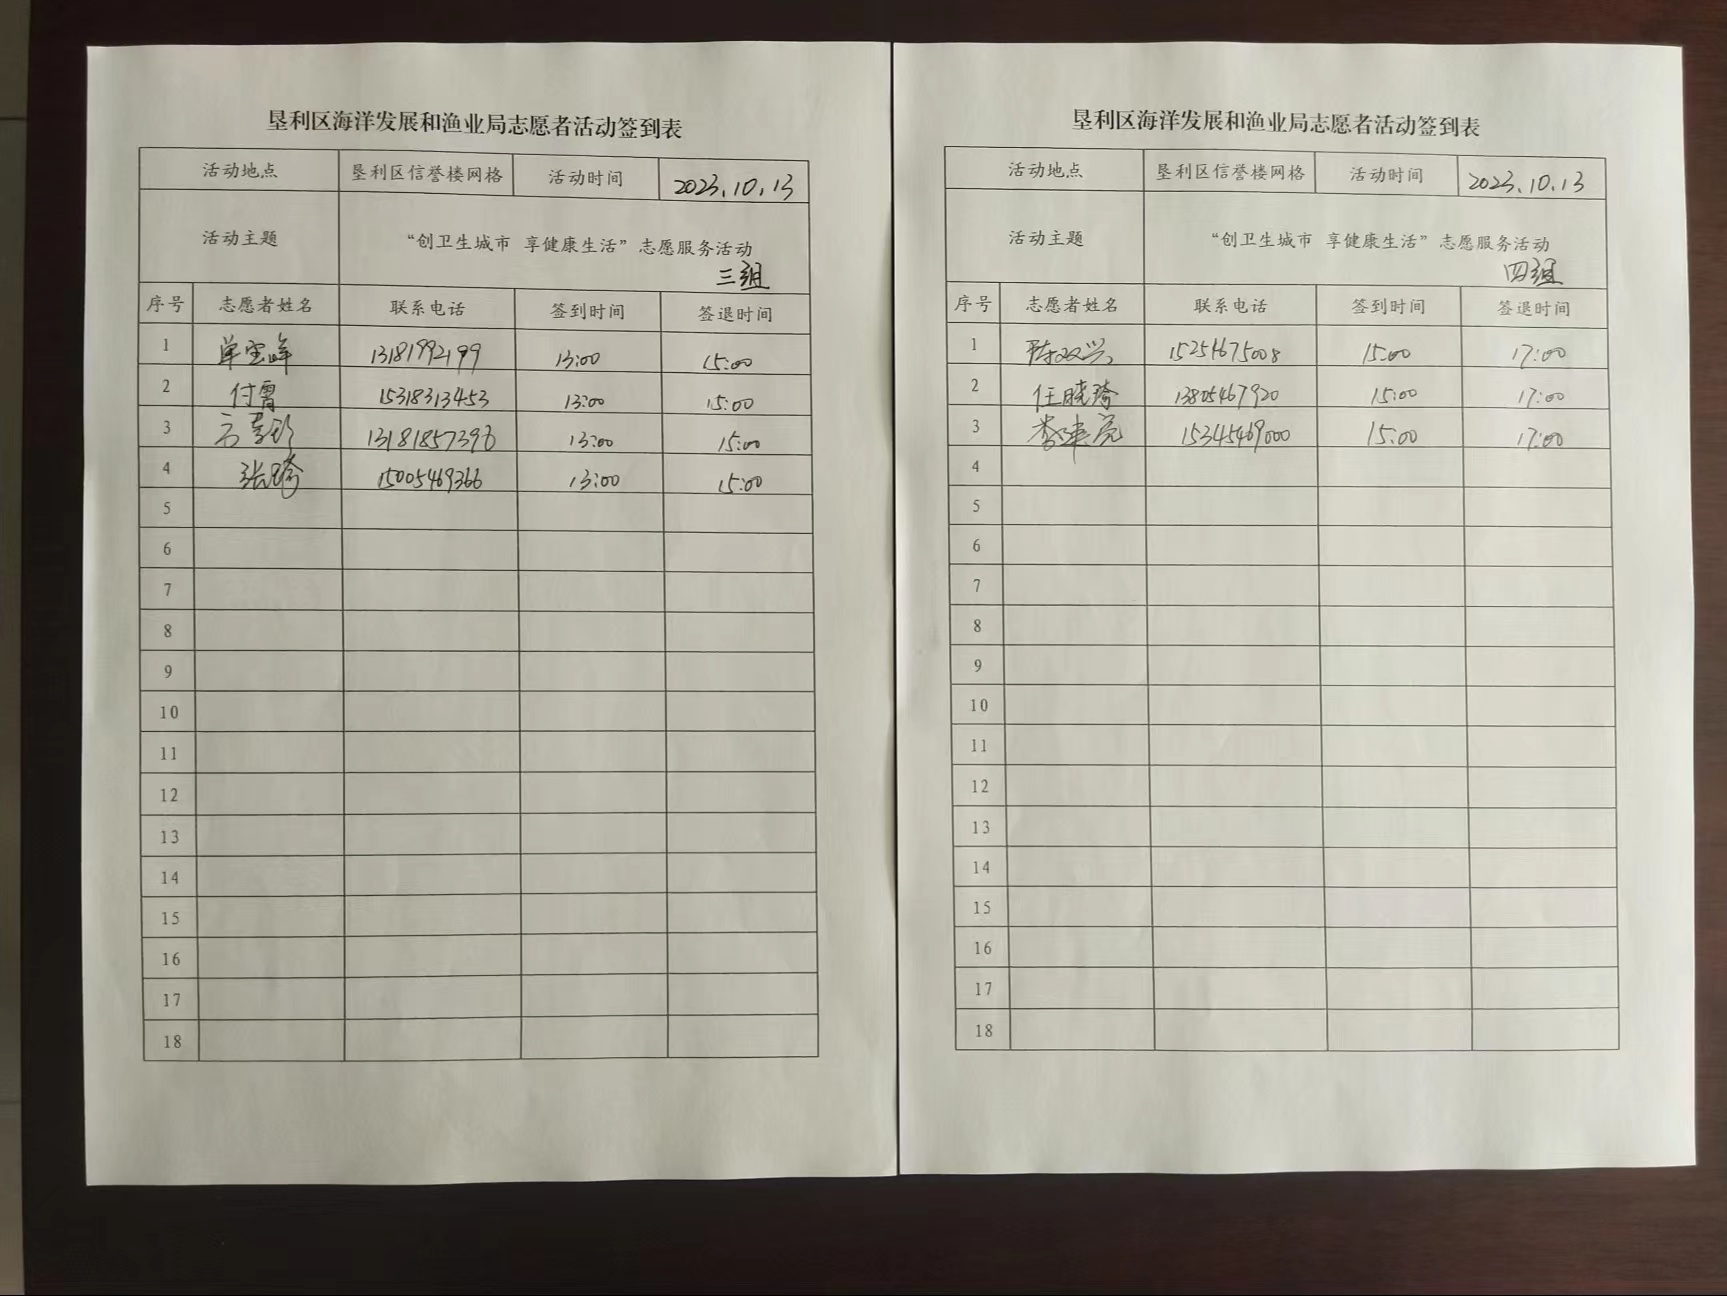 垦利区海洋发展和渔业局志愿者活动签到表
活动地点 垦利区信誉楼网格 活动时间 2023.10.13
活动主题 “创卫生城市 享健康生活”志愿服务活动
三组
序号 志愿者姓名 联系电话 签到时间 签退时间
1 单宝峰 13181992199 13:00 15:00
2 付霄 15318313453 13:00 15:00
3 13181857396 13:00 15:00
4 张琦 15005469366 13:00 15:00
5
6
7
8
9
10
11
12
13
14
15
16
17
18
垦利区海洋发展和渔业局志愿者活动签到表
活动地点 垦利区信誉楼网格 活动时间 2023.10.13
活动主题 “创卫生城市 享健康生活”志愿服务活动
四组
序号 志愿者姓名 联系电话 签到时间 签退时间
1 陈双兴 15254675008 15:00 17:00
2 任晓琦 13805467920 15:00 17:00
3 李建亮 15345469000 15:00 17:00
4
5
6
7
8
9
10
11
12
13
14
15
16
17
18